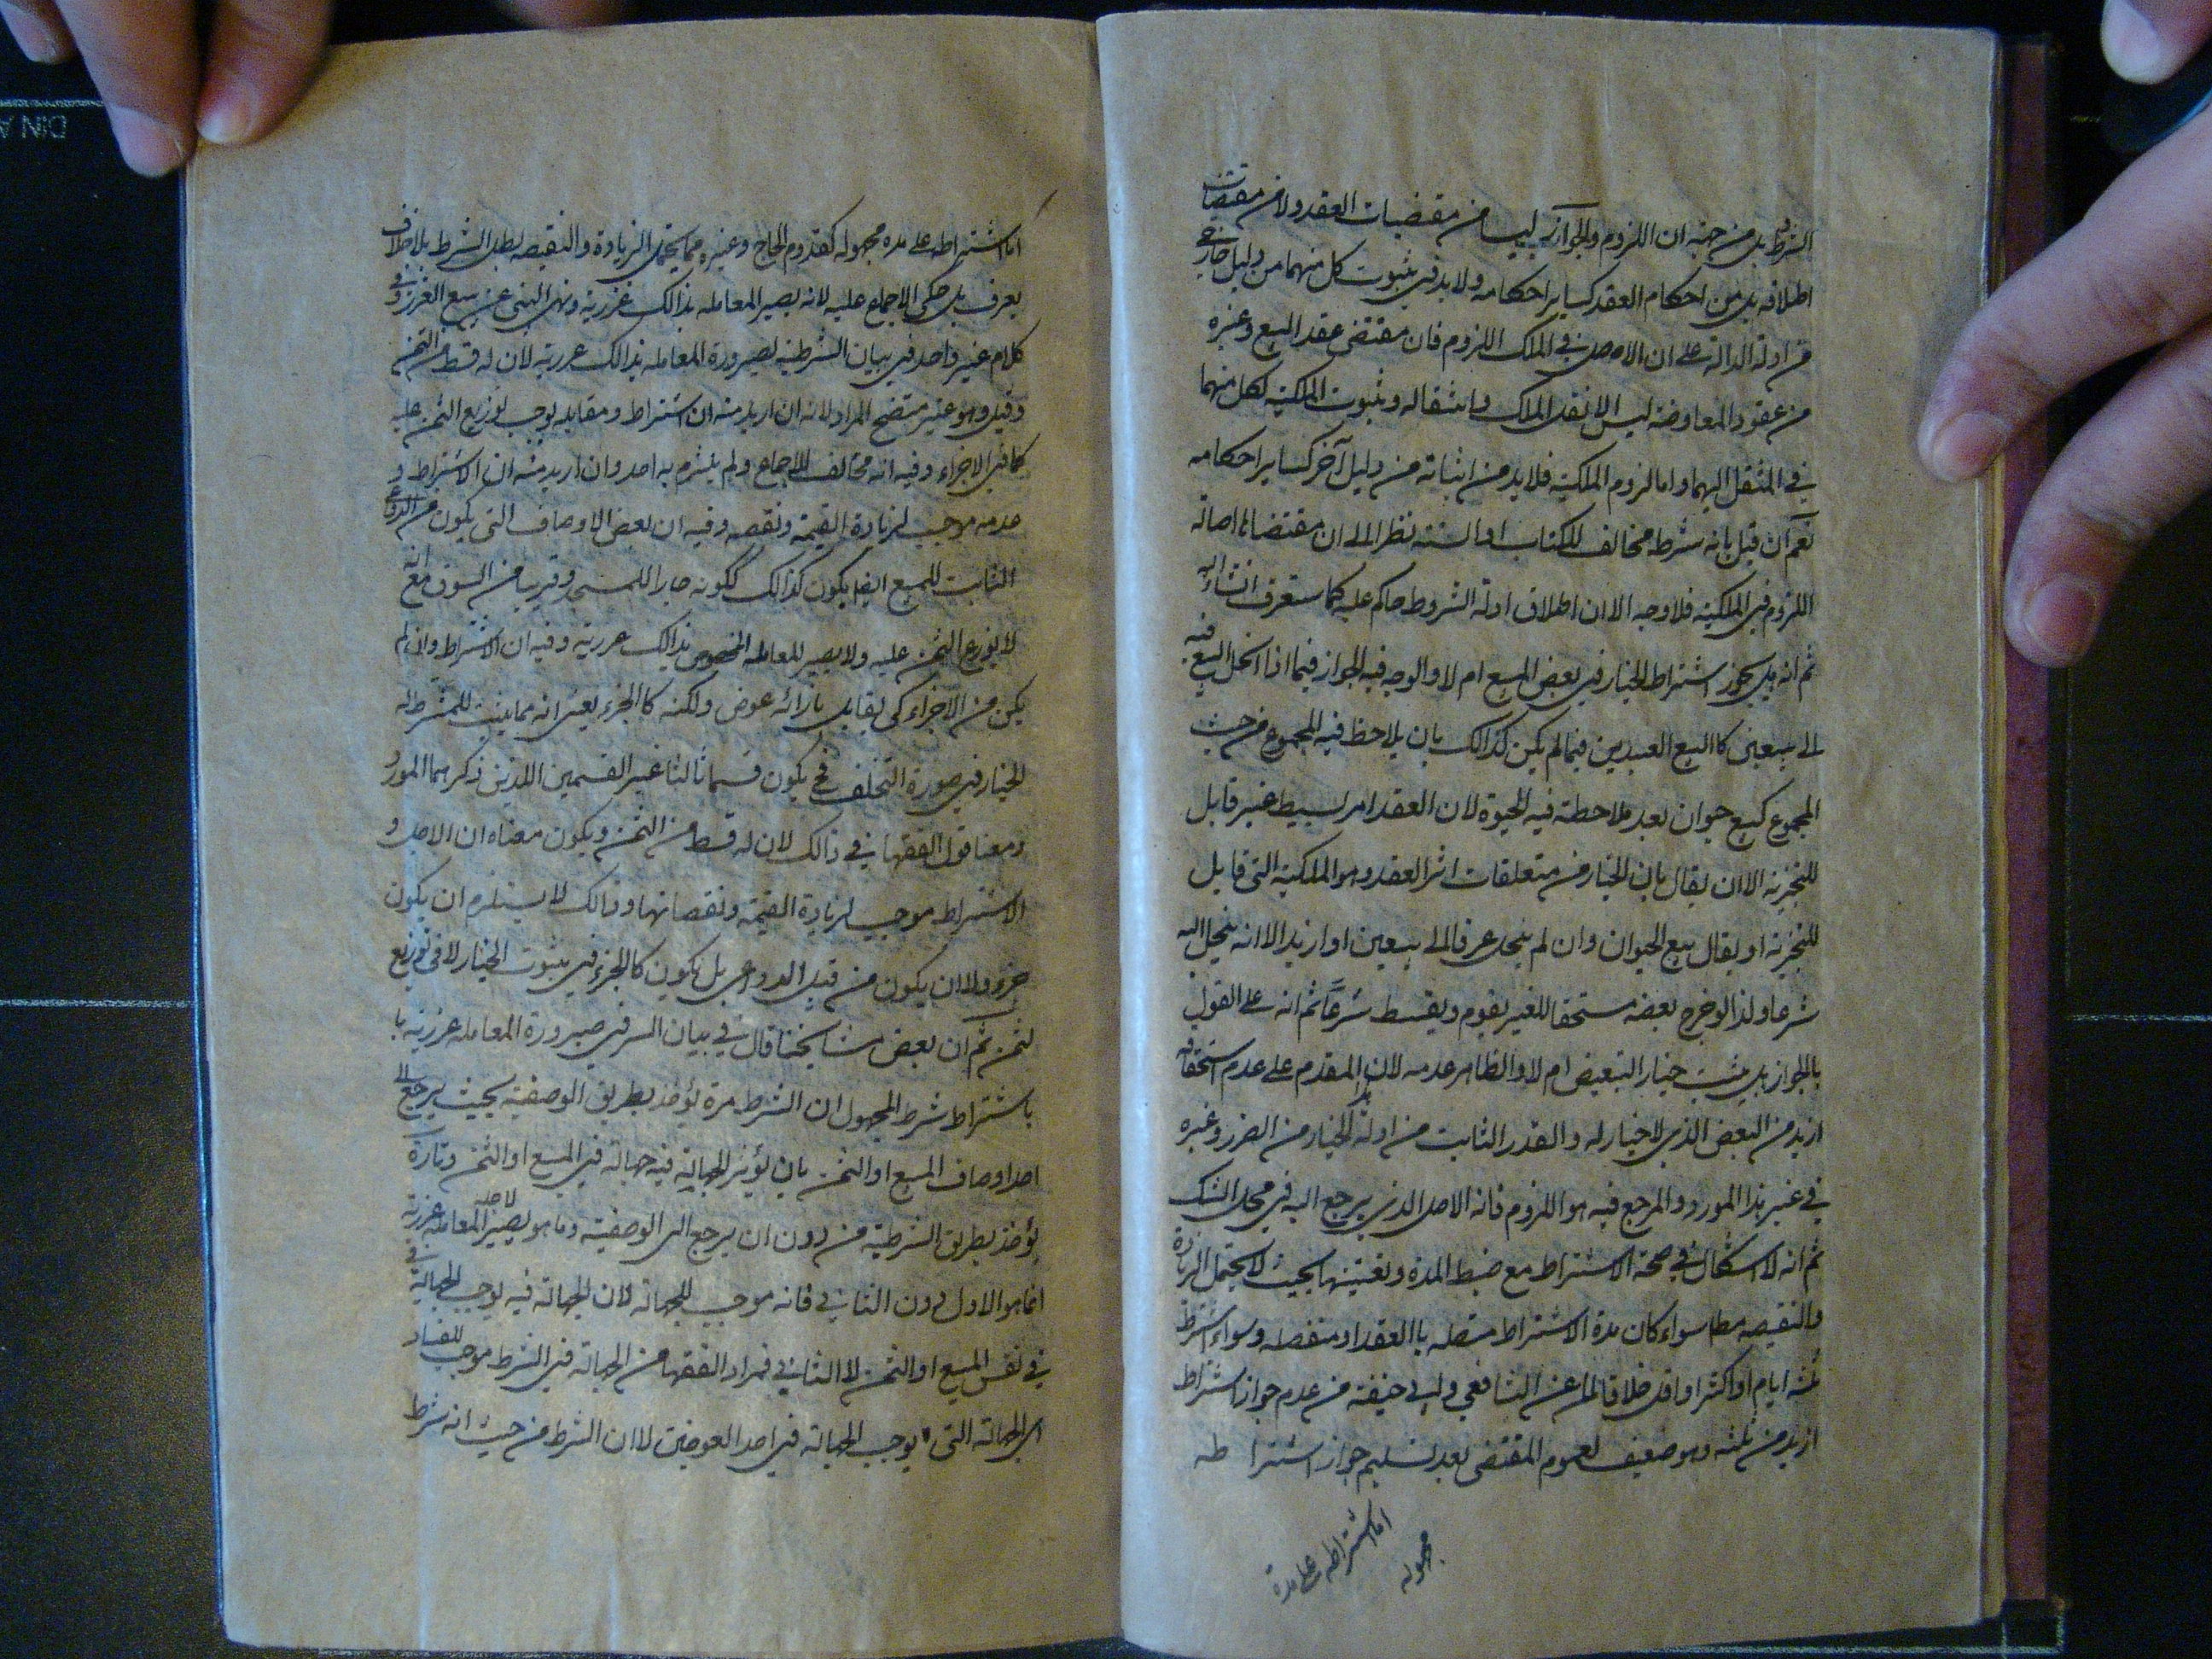 الشرط بل من جهة ان اللزوم والجواز ليسا من مقتضيات العقد ولا من مقتضات
اطلاقه بل من احكام العقد كساير احكامه ولا بد في ثبوت كل منهما من دليل خارج
من ادلة الدالة على ان الاصل في الملك اللزوم فان مقتضى عقد البيع وغيره
من عقود المعاوضة ليس الا نقل الملاك وانتقاله وثبوت الملكية لكل منهما
في المنتقل اليهما واما لزوم الملكية فلا بد من اثباته من دليل آخر كساير احكامه
نعم ان قيل بانه شرط مخالف للكتاب او السنة نظرا الى ان مقتضا اصالة
اللزوم في الملكية فلا وجه الا ان اطلاق ادلة الشروط حاكم عليه كما ستعرف انشاء الله
ثم انه هل يجوز اشتراط الخيار في بعض المبيع ام لا والوجه فيه الجواز فيما اذا انحل البيع فيه
الى بيعين كا البيع العبدين فيما لم يكن كذالك بان يلاحظ فيه المجموع من حيث
المجموع كبيع حيوان بعد ملاحظة فيه الحيوة لان العقد امر بسيط غير قابل
للتجزية الا ان يقال بان الخيار من متعلقات اثر العقد وهو الملكية التى قابل
للتجزية او يقال بيع الحيوان وان لم ينحل عرفا الى بيعين او ازيد الا انه ينحل اليه
شرعا ولذا لو خرج بعضه مستحقا للغير يقوم ويقسط شرعا ثم انه على القول
بالجواز هل يثبت خيار التبعيض ام لا والظاهر عدمه لان المقدم على عدم استحقاقه
ازيد من البعض الذي لا خيار له والقدر الثابت من ادلة الخيار من الضرر وغيره
في غير هذا المورد والمرجع فيه هو اللزوم فانه الاصل الذى يرجع اليه في محل الشك
ثم انه لا اشكال في صحة الاشتراط مع ضبط المدة وتعيينها بحيث لا يحتمل الزيادة
والنقيصه مطا سواء كان مدة الاشتراط متصله باالعقد او منفصله وسواء اشترط
ثلثه ايام او اكثر او اقل خلافا لما عن الشافعي وابى حنيفه من عدم جواز اشتراط
ازيد من ثلثه وهو ضعيف لعموم المقتضى بعد تسليم جواز اشتراطه
اما اشتراطه على مدة
مجهوله
اما اشتراطه على مده مجهوله كقدوم الحاج وغيره مما يحتمل الزيادة والنقيصه بطل الشرط بلا خلاف
يعرف بل حكى الاجماع عليه لانه يصير المعامله بذالك غررية ونهى النبى عن بيع الغرر وفى
كلام غير واحد في بيان الشرطية لصيرورة المعامله بذالك غررية لان له قسط من الثمن
وقيل وهو غير متضح المراد لانه ان اريد منه ان اشتراط ومقابله يوجب توزيع الثمن عليه
كما في الاجزاء وفيه انه مخالف للاجماع ولم يلتزم به احد وان اريد منه ان الاشتراط و
عدمه موجب لزيادة القيمة ونقصه وفيه ان بعض الاوصاف التى يكون من الدواعى
الثابت للمبيع ايضا يكون كذالك ككونه جارا للمسجد وقريبا من السوق مع انه
لا يوزع الثمن عليه ولا يصير المعامله المخصوص بذالك غررية وفيه ان الاشتراط وان لم
يكن من الاجزاء كى يقابل بازائه عوض ولكنه كا الجزء يعنى انه مما يثبت للمشترط له
الخيار في صورة التخلف فح يكون قسما ثالثا غير القسمين اللذين ذكرهما المورد
ومعنا قول الفقهاء في ذالك لان له قسط من الثمن ويكون معناه ان الاجل و
الاشتراط موجب لزيادة القيمة ونقصانها وذالك لا يستلزم ان يكون
جزء ولا ان يكون من قبيل الدواعى بل يكون كا الجزء في ثبوت الخيار لا في توزيع
لثمن ثم ان بعض مشايخنا قال في بيان السر في صيرورة المعامله غررية با
باشتراط شرط المجهول ان الشرط مرة يؤخذ بطريق الوصفية بحيث يرجع الى
احد اوصاف المبيع او الثمن بان يؤثر الجهالة فيه جهالة في المبيع او الثمن وتارة
يؤخذ بطريق الشرطية من دون ان يرجع الى الوصفية وما هو يصير لاجله المعامله غررية
انما هو الاول دون الثانى فانه موجب للجهالة لان الجهالة فيه يوجب الجهالة في
في نفس المبيع او الثمن لا الثانى فمراد الفقها من الجهالة في الشرط موجب للفساد
اى الجهالة التى يوجب الجهالة في احد العوضين لا ان الشرط من حيث انه شرط